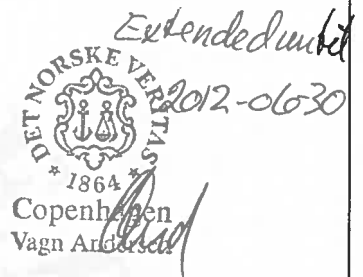 Extended until
2012-06-30
DET NORSKE VERITAS
1864
Copenhagen
Vagn Andersen